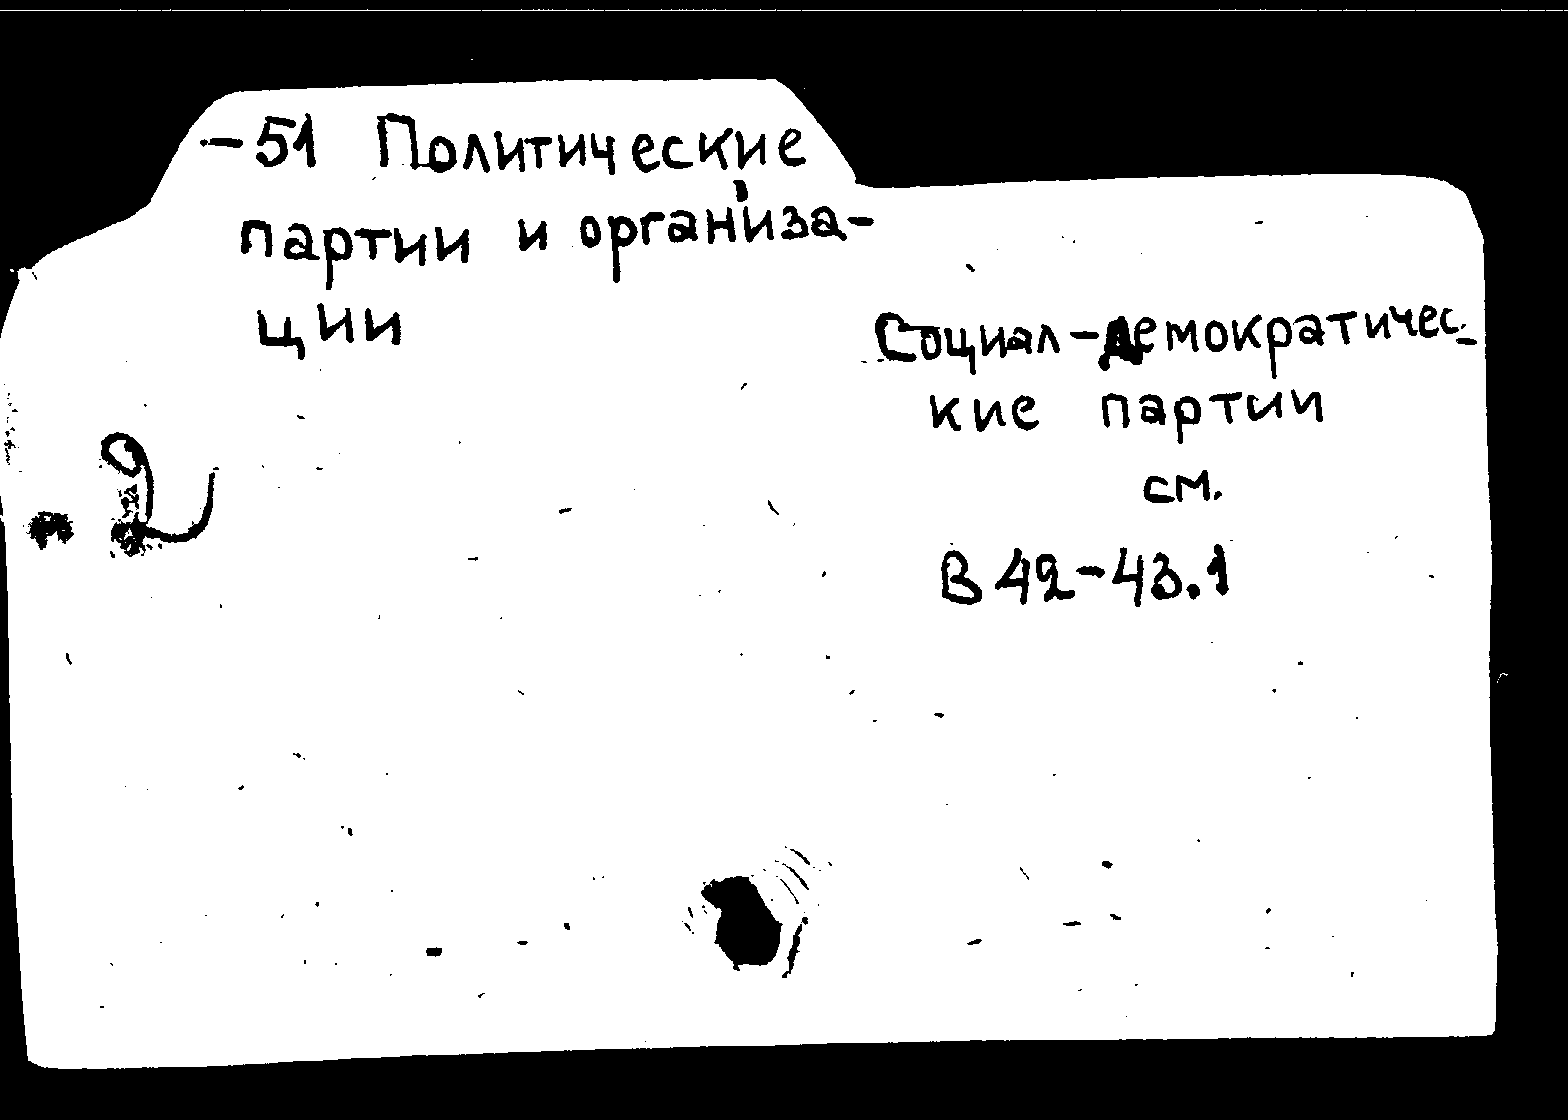 -51 Политические
партии и организа-
ции
Социал-демократичес-
кие партии
см.
В 42-43.1
2